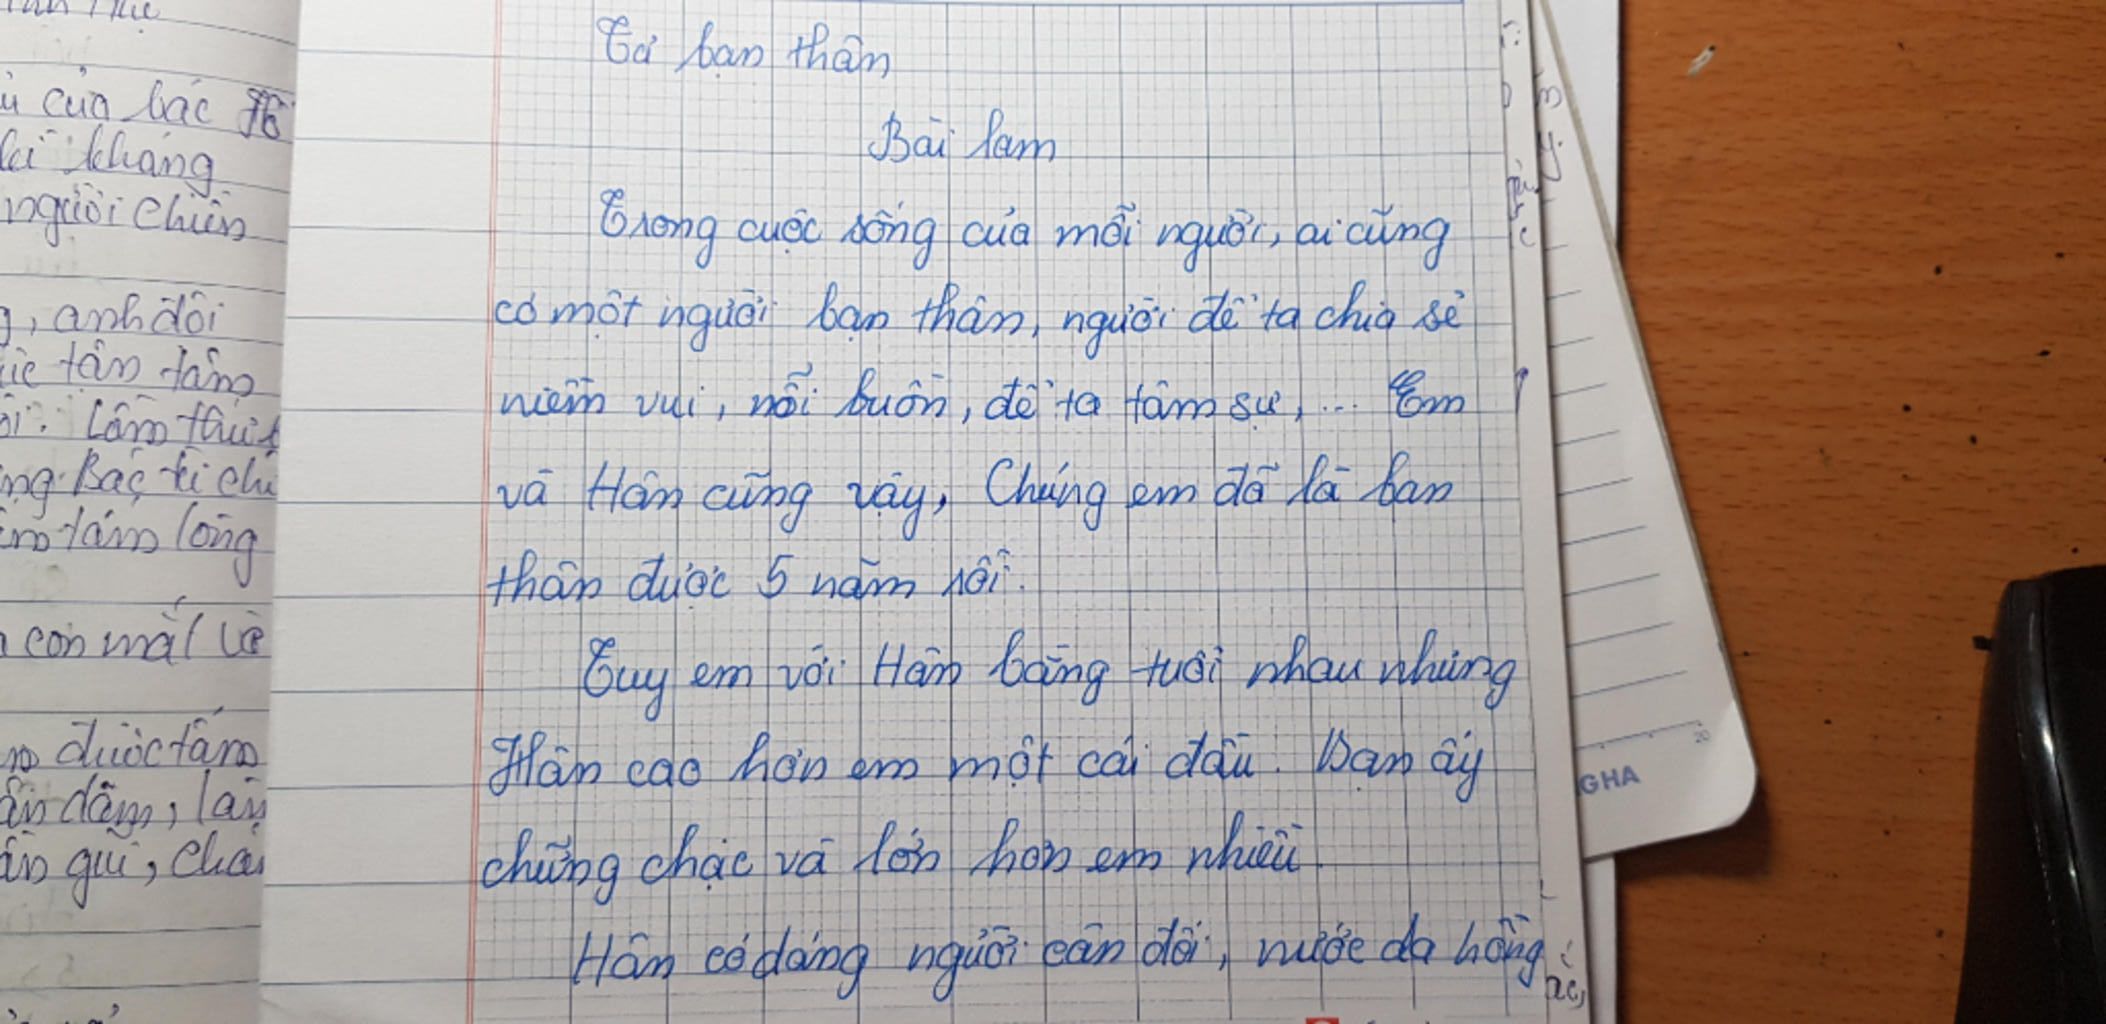 của bác Hồ
kháng
người chiến
anh đội
tân tâm
Lâm thuật
Bác kí chi
tấm lòng
con mắt về
được tâm
dân dẫm, lại
gũi, cha
Tả bạn thân
Bài làm
Trong cuộc sống của mỗi người, ai cũng
có một người bạn thân, người để ta chia sẻ
niềm vui, nỗi buồn, để ta tâm sự, ... Em
và Hân cũng vậy, Chúng em đã là bạn
thân được 5 năm rồi.
Tuy em với Hân bằng tuổi nhau nhưng
Hân cao hơn em một cái đầu. Bạn ấy
chững chạc và lớn hơn em nhiều.
Hân có dáng người cân đối, nước da hồng
GHA
20